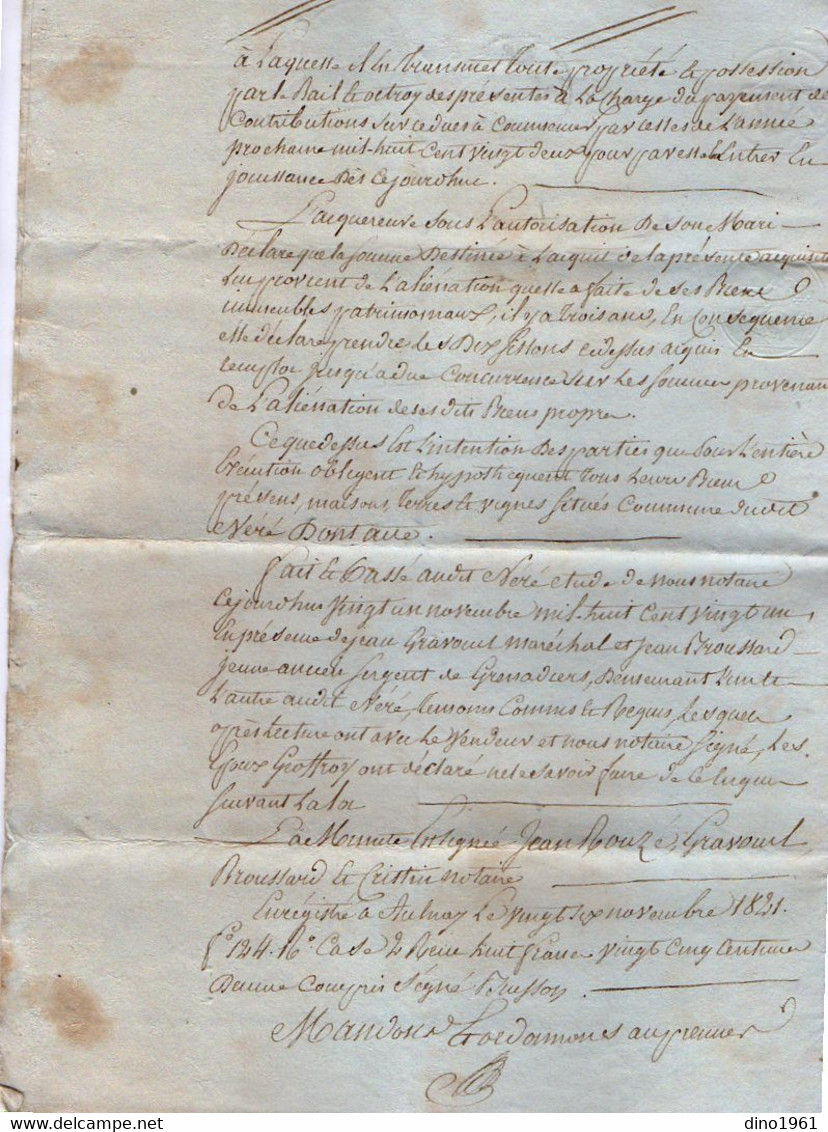 à Laquelle il en transmet toute propriété & possession
par le Bail & octroy des présentes à la charge du payement de
Contributions sur icelles à commencer par celles de L'année
prochaine mil-huit cent vingt deux pour par elle Entrer En
jouissance Dès cejourdhui.
L'acquereure sous L'autorisation De son Mari
Déclare que la somme Destinée à L'acquit de la présente acquisit
Lui provient de L'aliénation quelle a faite de ses Biens
immeubles patrimoniaux, il y a trois ans, En Conséquence
elle déclare prendre les Dix sillons cidessus acquis En
remploi jusqu'a due Concurrence sur Les sommes provenan
De L'aliénation de ses dits Biens propres.
Ce que dessus Est L'intention Des parties que pour L'entière
Exécution obligent & hypothequent tous Leurs Biens
présens, maisons, terres & vignes situés Commune dudit
Néré Dont acte.
Fait & Passé audit Néré etude de nous notaire
Cejourdhui vingt un novembre mil-huit cent vingt un,
En présence de jean Gravouil maréchal et jean Broussard
jeune ancien sergent de Grenadiers, Demeurant L'un &
L'autre audit Néré, temoins Connus & Requis, lesquels
après Lecture ont avec Le Vendeur et nous notaire signé, Les
Epoux Geoffroy ont déclaré ne le savoir faire de ce Enquis
suivant La loi
La Minute Est signée Jean Rouzé, Gravouil,
Broussard & Cristin notaire
Enregistré à Aulnay Le vingt six novembre 1821.
f° 124. R° Case 2 Reçu huit francs vingt cinq centimes
Dixme Compris Signé Busson
Mandons & ordonnons au premier
dino1961